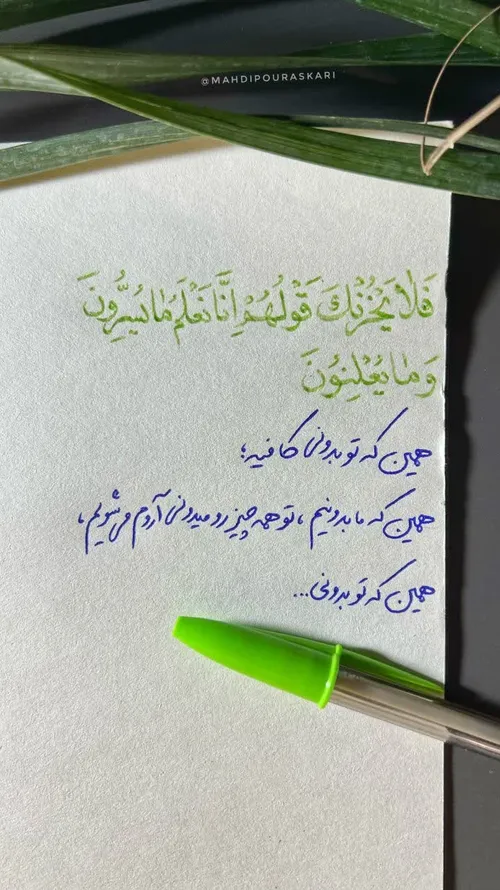 @MAHDIPOURASKARI
فَلَا يَحْزُنْكَ قَوْلُهُمْ اِنَّا نَعْلَمُ مَا يُسِرُّونَ
وَ مَا يُعْلِنُونَ
همین که تو بدونی کافیه؛
همین که ما بدونیم، تو همه چیز رو میدونی آروم می‌شویم،
همین که تو بدونی...